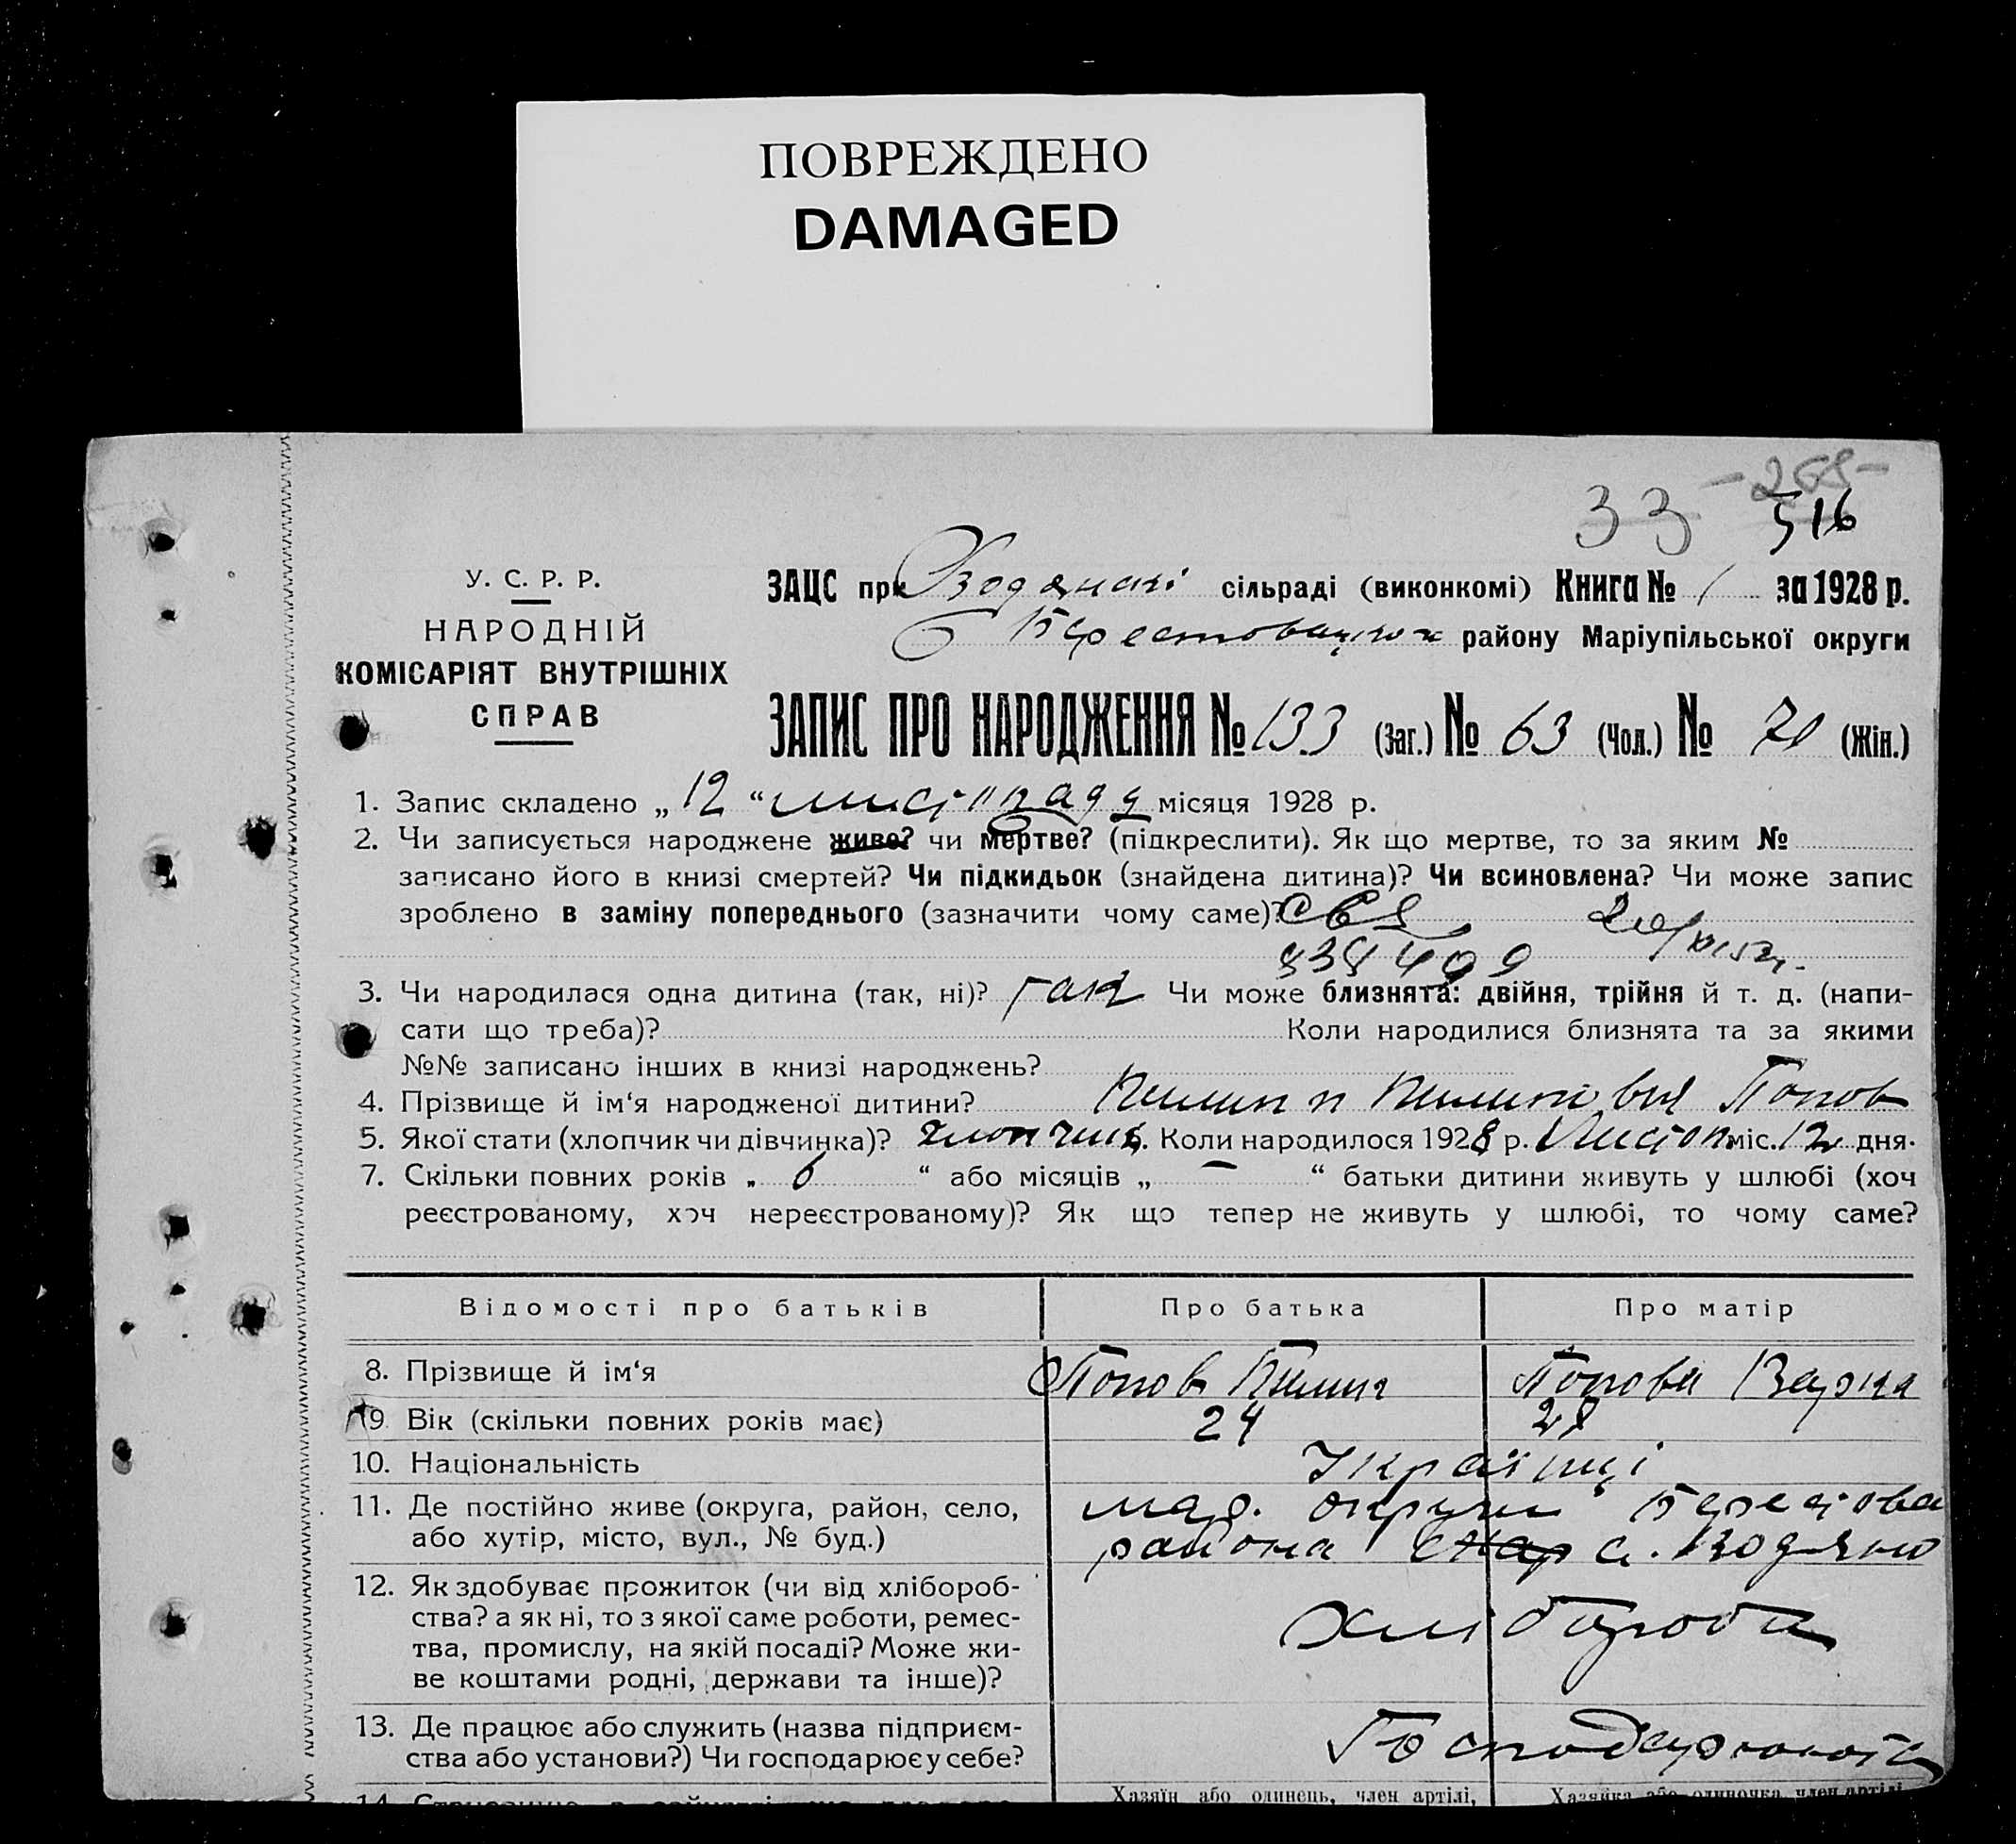 ПОВРЕЖДЕНО
DAMAGED
- 268 -
33 516
У. С. Р. Р.
НАРОДНІЙ
КОМІСАРІЯТ ВНУТРІШНІХ
СПРАВ
ЗАЦС при сільраді (виконкомі) Книга № 1 за 1928 р.
району Маріупільської округи
ЗАПИС ПРО НАРОДЖЕННЯ № 133 (Заг.) № 63 (Чол.) № 70 (Жін.)
1. Запис складено „ 12 “ листопада місяця 1928 р.
2. Чи записується народжене живе? чи мертве? (підкреслити). Як що мертве, то за яким №
записано його в книзі смертей? Чи підкидьок (знайдена дитина)? Чи всиновлена? Чи може запис
зроблено в заміну попереднього (зазначити чому саме)?
3. Чи народилася одна дитина (так, ні)? так Чи може близнята: двійня, трійня й т. д. (напи-
сати що треба)? Коли народилися близнята та за якими
№№ записано інших в книзі народжень?
4. Прізвище й ім‘я народженої дитини? Пилип Пилипович Попов
5. Якої стати (хлопчик чи дівчинка)? хлопчик. Коли народилося 1928 р. Листоп. міс. 12 дня.
7. Скільки повних років „ 6 “ або місяців „ — “ батьки дитини живуть у шлюбі (хоч
реєстрованому, хоч нереєстрованому)? Як що тепер не живуть у шлюбі, то чому саме?
Відомості про батьків Про батька Про матір
8. Прізвище й ім‘я Попов Пилип Попова Варка
9 Вік (скільки повних років має) 24 28
10. Національність Українці
11. Де постійно живе (округа, район, село, мар. округи Берестова
або хутір, місто, вул., № буд.) района с. Водяно
12. Як здобуває прожиток (чи від хлібороб-
ства? а як ні, то з якої саме роботи, ремес- хлібороби
тва, промислу, на якій посаді? Може жи-
ве коштами родні, держави та інше)?
13. Де працює або служить (назва підприєм-
ства або установи?) Чи господарює у себе?
Хазяїн або одинець, член артілі, Хазяйка або одиночка, член артілі